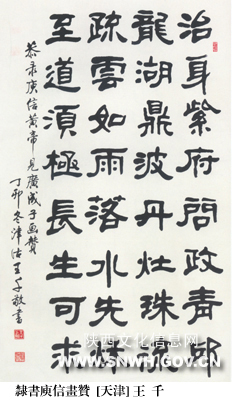 治身紫府問政青邱
龍湖鼎波丹灶珠流
疏雲如雨落水先秋
至道須極長生可求
恭录庾信黄帝見廣成子画贊
丁卯冬津沽王千敬書
陕西文化信息网
www.snwh.gov.cn
隸書庾信畫贊 [天津] 王 千